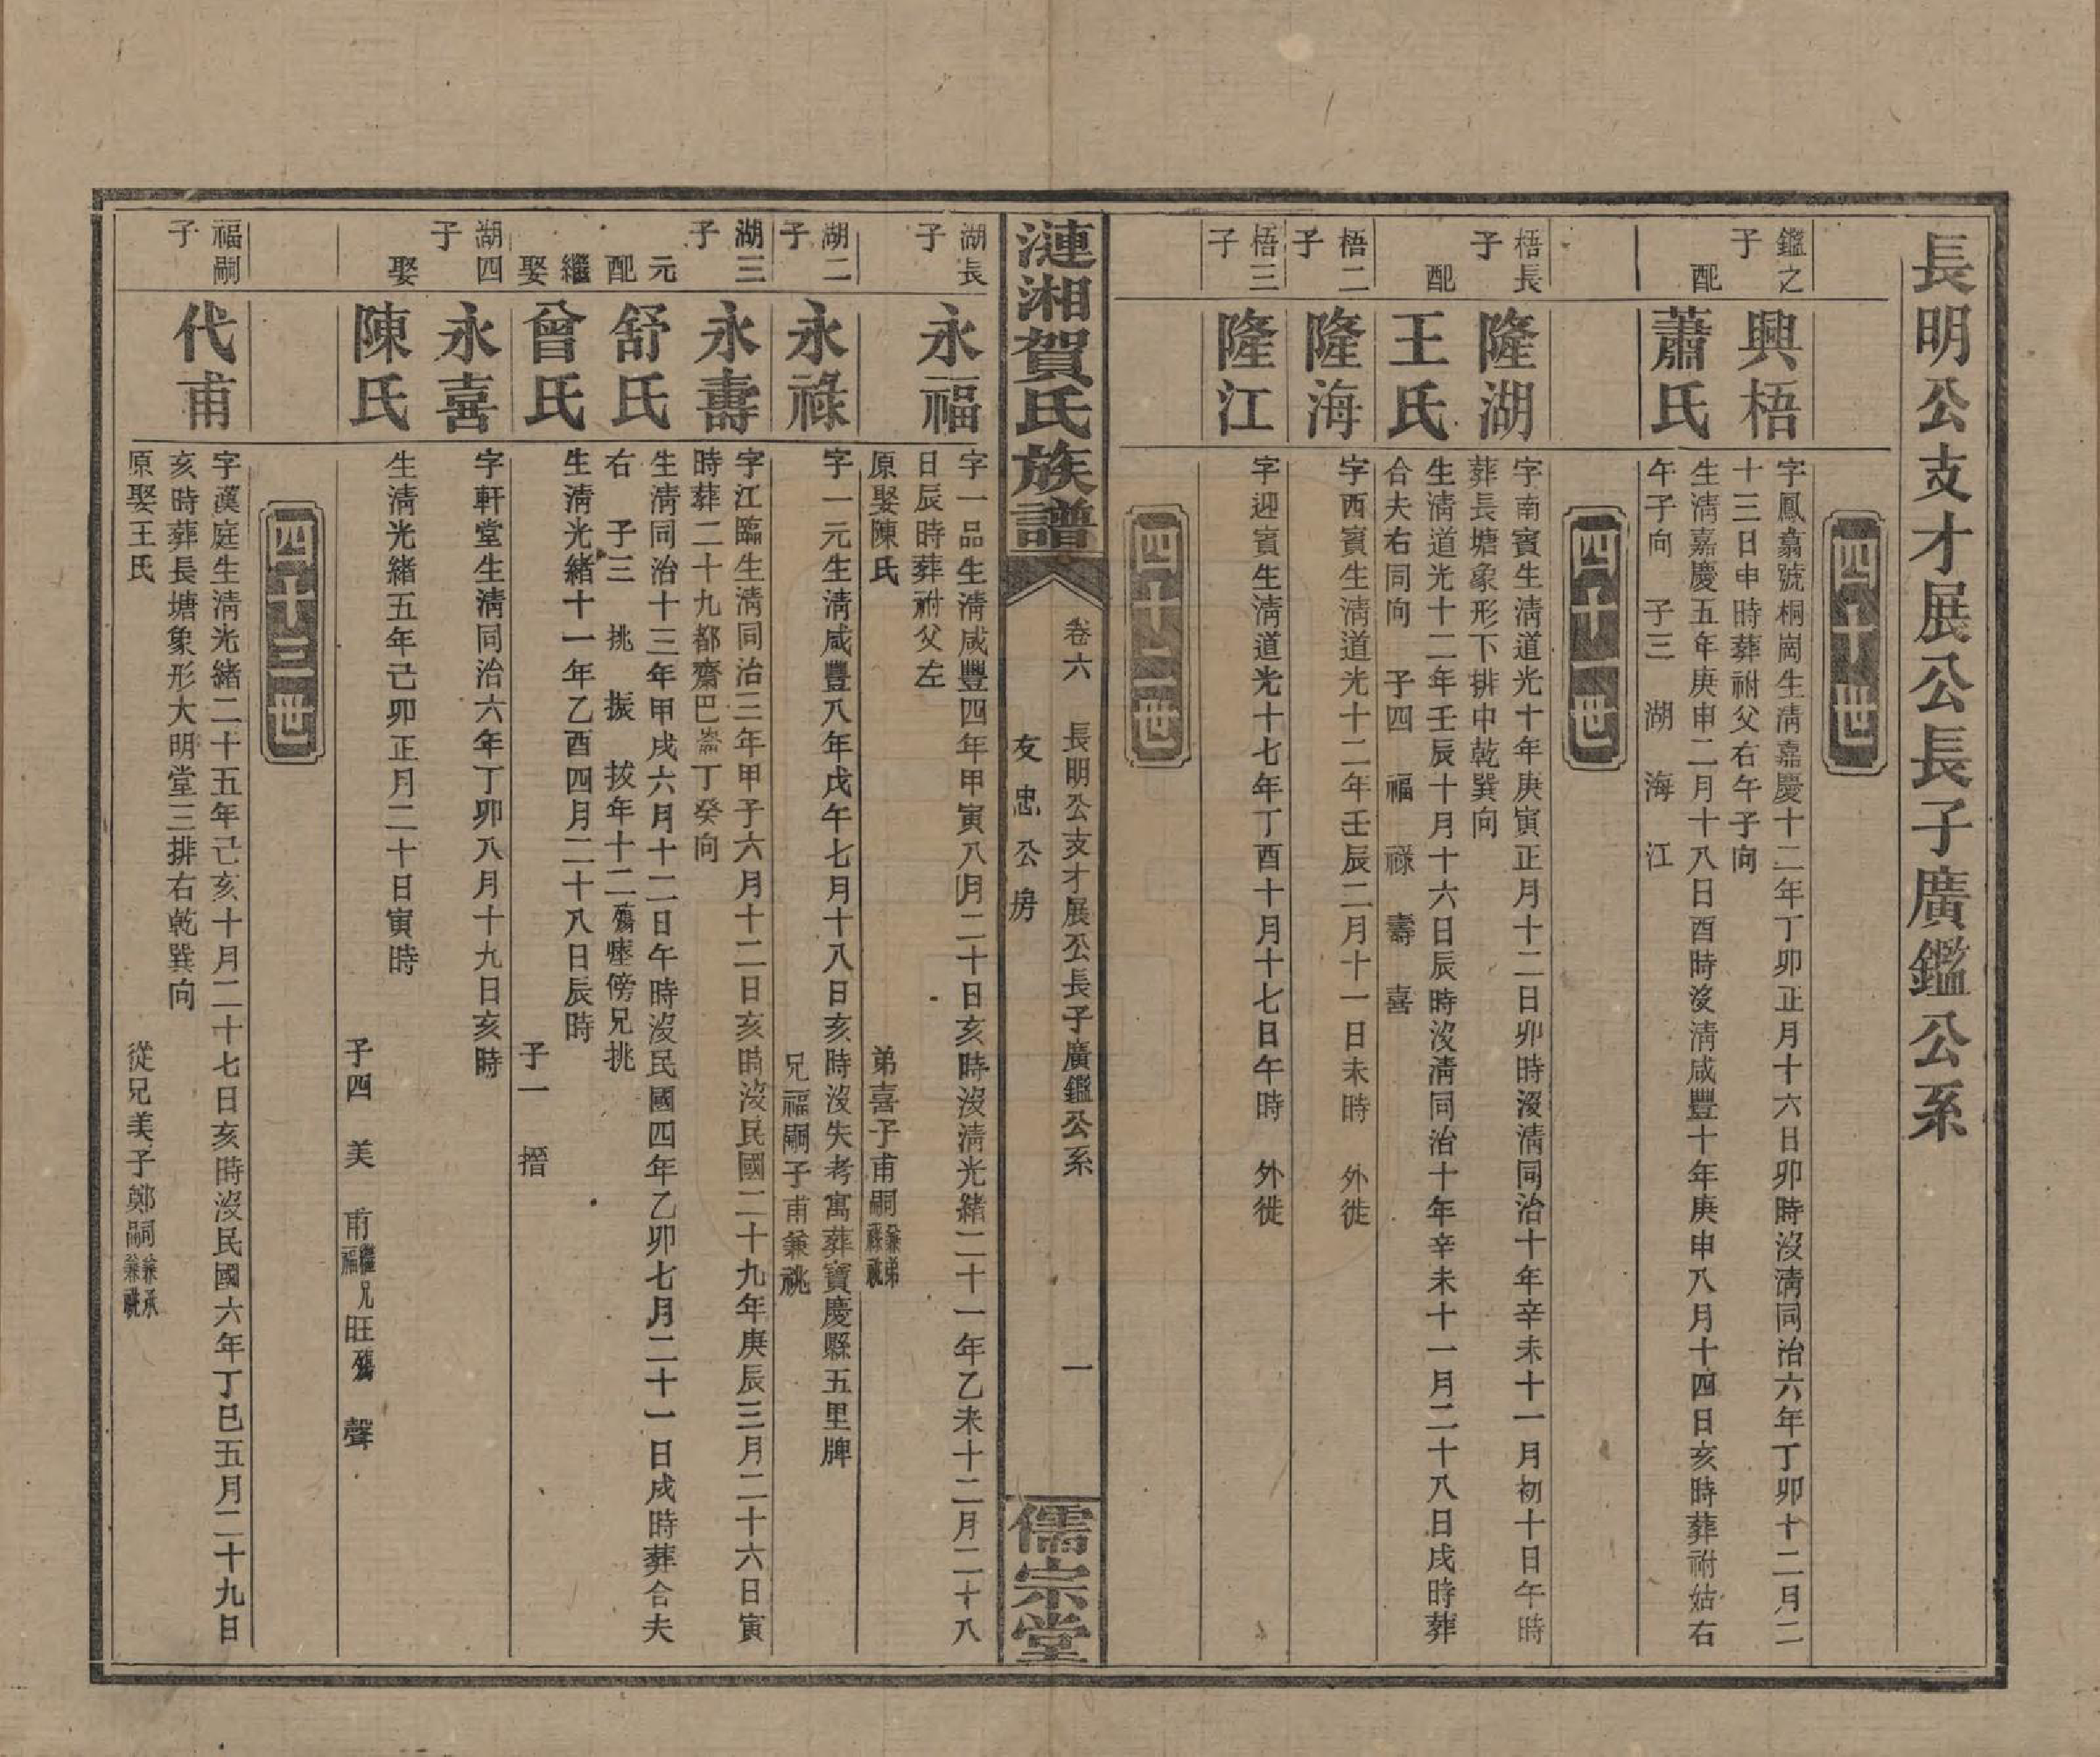 長明公支才展公長子廣鑑公系
四十世
鑑之子
興梧
字鳳翥號桐崗生淸嘉慶十二年丁卯正月十六日卯時沒淸同治六年丁卯十二月二
十三日申時葬祔父右午子向
配
蕭氏
生淸嘉慶五年庚申二月十八日酉時沒淸咸豐十年庚申八月十四日亥時葬祔姑右
午子向 子三 湖 海 江
四十一世
梧長子
隆湖
字南賓生淸道光十年庚寅正月十二日卯時沒淸同治十年辛未十一月初十日午時
葬長塘象形下排中乾巽向
配
王氏
生淸道光十二年壬辰十月十六日辰時沒淸同治十年辛未十一月二十八日戌時葬
合夫右同向 子四 福 祿 壽 喜
梧二子
隆海
字西賓生淸道光十二年壬辰二月十一日未時 外徙
梧三子
隆江
字迎賓生淸道光十七年丁酉十月十七日午時 外徙
四十二世
漣湘賀氏族譜
卷六 長明公支才展公長子廣鑑公系 一
友忠公房
儒宗堂
湖長子
永福
字一品生淸咸豐四年甲寅八月二十日亥時沒淸光緒二十一年乙未十二月二十八
日辰時葬祔父左
原娶陳氏 弟喜子甫嗣兼弟祿祧
湖二子
永祿
字一元生淸咸豐八年戊午七月十八日亥時沒失考寓葬寶慶縣五里牌
兄福嗣子甫兼祧
湖三子
永壽
字江臨生淸同治三年甲子六月十二日亥時沒民國二十九年庚辰三月二十六日寅
時葬二十九都齋巴崙丁癸向
元配
舒氏
生淸同治十三年甲戌六月十二日午時沒民國四年乙卯七月二十一日戌時葬合夫
右 子三 挑 振 拔年十二殤瘞傍兄挑
繼娶
曾氏
生淸光緒十一年乙酉四月二十八日辰時
子一 摺
湖四子
永喜
字軒堂生淸同治六年丁卯八月十九日亥時
娶
陳氏
生淸光緒五年己卯正月二十日寅時
子四 美 甫繼兄福 旺殤 聲
四十三世
福嗣子
代甫
字漢庭生淸光緒二十五年己亥十月二十七日亥時沒民國六年丁巳五月二十九日
亥時葬長塘象形大明堂三排右乾巽向
原娶王氏 從兄美子鄭嗣兼承兼祧